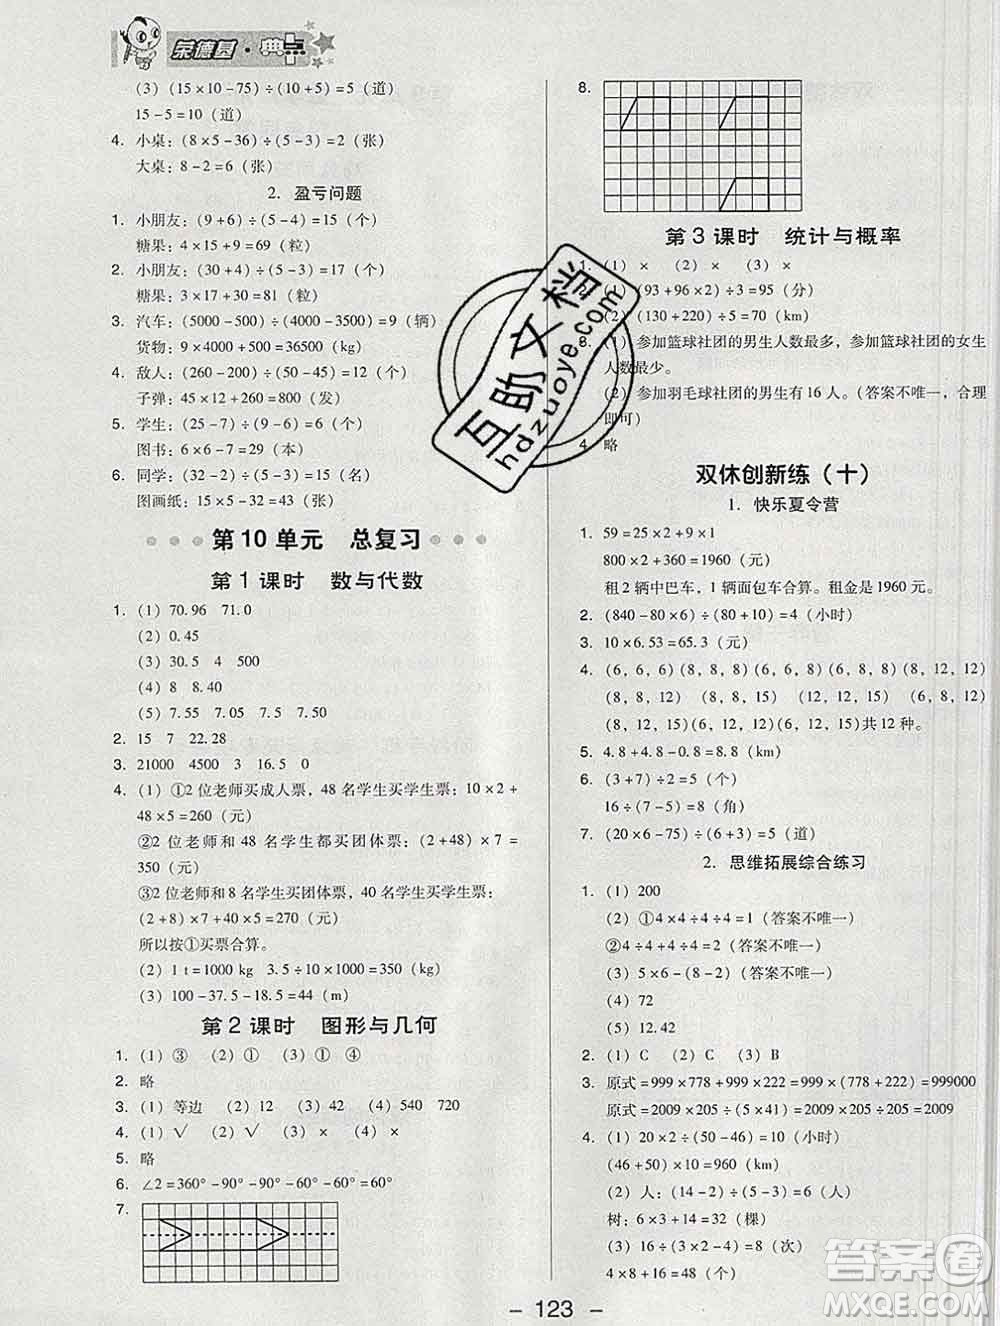 荣德基·典点
(3) (15×10-75)÷(10+5)=5(道)
15-5=10(道)
4. 小桌:(8×5-36)÷(5-3)=2(张)
大桌:8-2=6(张)
2. 盈亏问题
1. 小朋友:(9+6)÷(5-4)=15(个)
糖果:4×15+9=69(粒)
2. 小朋友:(30+4)÷(5-3)=17(个)
糖果:3×17+30=81(粒)
3. 汽车:(5000-500)÷(4000-3500)=9(辆)
货物:9×4000+500=36500(kg)
4. 敌人:(260-200)÷(50-45)=12(个)
子弹:45×12+260=800(发)
5. 学生:(25-7)÷(9-6)=6(个)
图书:6×6-7=29(本)
6. 同学:(32-2)÷(5-3)=15(名)
图画纸:15×5-32=43(张)
第10单元 总复习
第1课时 数与代数
1. (1) 70.96 71.0
(2) 0.45
(3) 30.5 4 500
(4) 8 8.40
(5) 7.55 7.05 7.5 7.50
2. 15 7 22.28
3. 21000 4500 3 16.5 0
4. (1) ①2位老师买成人票,48名学生买学生票:10×2+
48×5=260(元)
②2位老师和48名学生都买团体票:(2+48)×7=
350(元)
③2位老师和8名学生买团体票,40名学生买学生票:
(2+8)×7+40×5=270(元)
所以按①买票合算。
(2) 1 t=1000 kg 3.5÷10×1000=350(kg)
(3) 100-37.5-18.5=44(m)
第2课时 图形与几何
1. (1) ③ (2) ① (3) ① ④
2. 略
3. (1) 等边 (2) 12 (3) 42 (4) 540 720
4. (1) √ (2) √ (3) × (4) ×
5. 略
6. ∠2=360°-90°-90°-60°-60°=60°
7.
8.
第3课时 统计与概率
1. (1) × (2) × (3) ×
(1) (93+96×2)÷3=95(分)
(2) (130+220)÷5=70(km)
(1) 参加篮球社团的男生人数最多,参加篮球社团的女生
人数最少。
(2) 参加羽毛球社团的男生有16人。(答案不唯一,合理
即可)
4 略
双休创新练(十)
1. 快乐夏令营
1. 59=25×2+9×1
800×2+360=1960(元)
租2辆中巴车、1辆面包车合算。租金是1960元。
2. (840-80×6)÷(80+10)=4(小时)
3. 10×6.53=65.3(元)
4. (6,6,6)(8,8,8)(6,6,8)(6,8,8)(8,12,12)
(8,8,12) (8,8,15) (12,12,15) (6,8,12)
(8,12,15)(6,12,12)(8,15,12)共12种。
5. 4.8+4.8-0.8=8.8(km)
6. (3+7)÷2=5(个)
16÷(7-5)=8(角)
7. (20×6-75)÷(6+3)=5(道)
2. 思维拓展综合练习
1. (1) 200
(2) ①4×4÷4÷4=1(答案不唯一)
②4÷4+4÷4=2(答案不唯一)
(3) 5×6-(8-2)(答案不唯一)
(4) 72
(5) 12.42
2. (1) C (2) C (3) B
3. 原式=999×778+999×222=999×(778+222)=999000
原式=2009×205÷(5×41)=2009×205÷205=2009
4. (1) 20×2÷(50-46)=10(小时)
(46+50)×10=960(km)
(2) 人:(14-2)÷(5-3)=6(人)
树:6×3+14=32(棵)
(3) 16÷(3×2-4)=8(次)
4×8+16=48(个)
- 123 -
互助文档
hdzuoye.com
答案圈
MXQE.COM